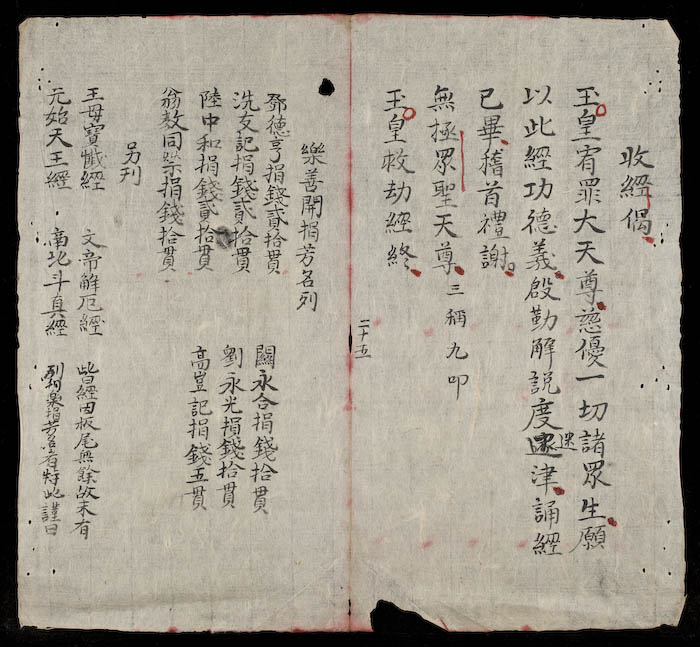 收經偈
玉皇宥罪大天尊慈優一切諸眾生願
以此經功德義啟勤解説度迷津誦經
已畢稽首禮謝
無極眾聖天尊 三稱九叩
玉皇救劫經終
二十五
樂善開捐芳名列
鄧德亨捐錢貳拾貫 關永合捐錢拾貫
洗友記捐錢貳拾貫 劉永光捐錢拾貫
陸中和捐錢貳拾貫 高豈記捐錢五貫
翁敎同祭捐錢拾貫
另列
王母寶懺經 文帝解厄經 此皆經因板尾無餘故未有
元始天王經 南北斗真經 列樂捐芳名者特此謹白